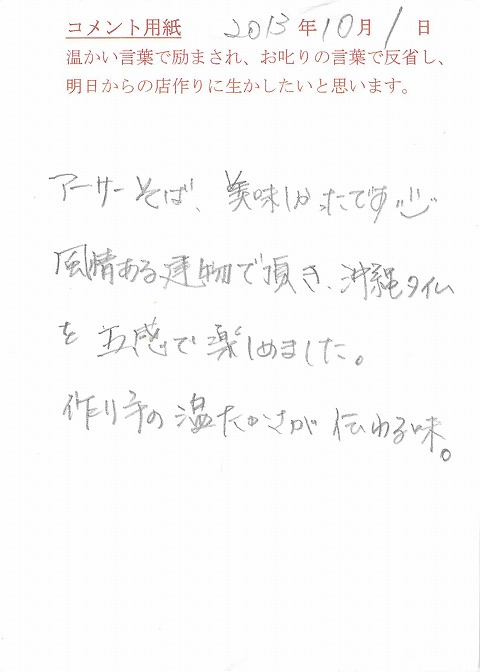 コメント用紙 2013年10月1日
温かい言葉で励まされ、お叱りの言葉で反省し、
明日からの店作りに生かしたいと思います。
アーサーそば、美味しかったです。
風情ある建物で頂き、沖縄タイム
を五感で楽しめました。
作り手の温たかさが伝わる味。